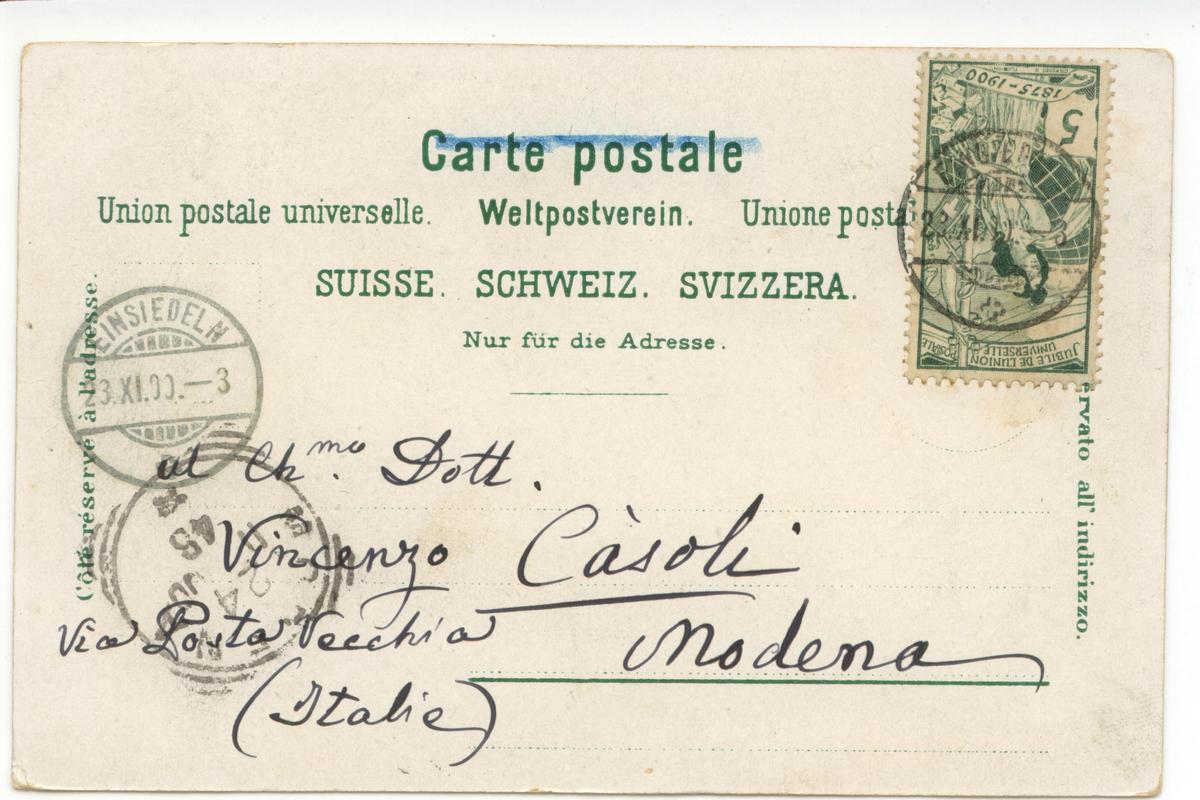 Carte postale
Union postale universelle. Weltpostverein. Unione posta
SUISSE. SCHWEIZ. SVIZZERA.
Nur für die Adresse.
Côté réservé à l'adresse.
ervato all' indirizzo.
1875-1900
5
JUBILE DE L'UNION
POSTALE
UNIVERSELLE
23.XI.00.-3
EINSIEDELN
23.XI.00.-3
al Ch.mo Dott.
Vincenzo Càsoli
Via Posta Vecchia
Modena
(Italie)